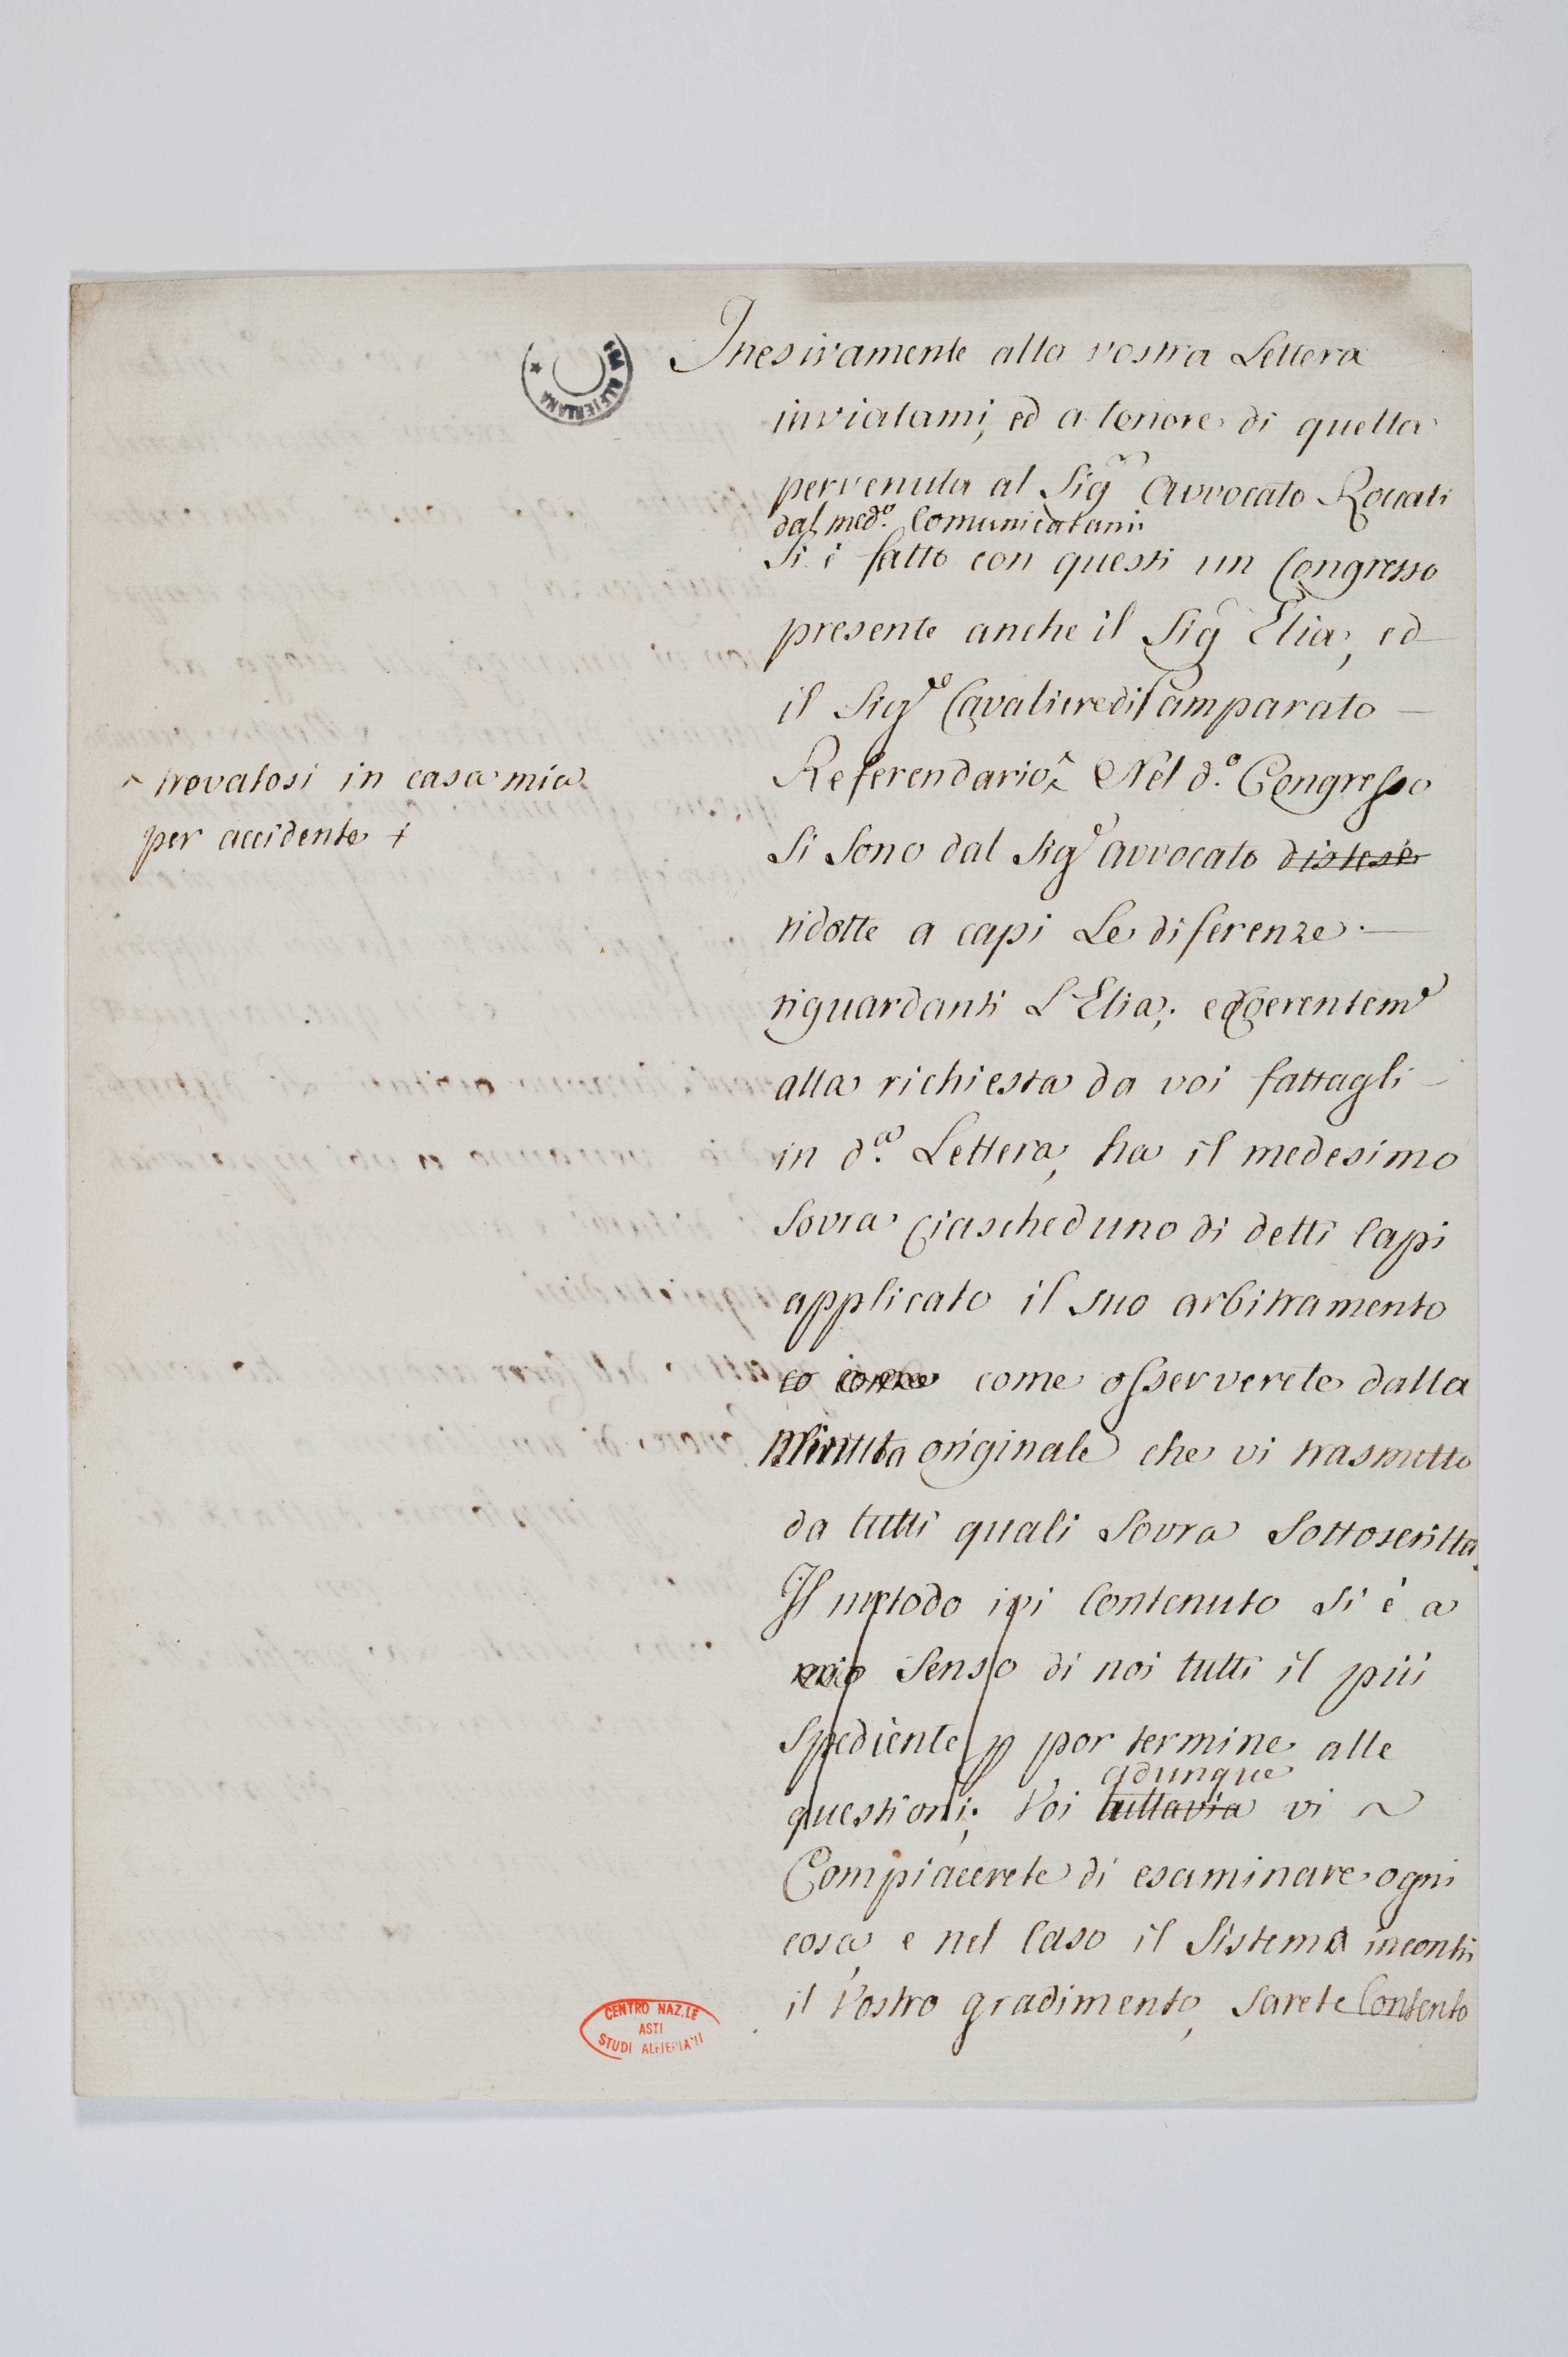 Inesivamente alla vostra Lettera
inviatami, ed a tenore di quella
pervenuta al Sigr Avvocato Rovati
dal med.o Comunicatami
Si è fatto con questi un Congresso
presente anche il Sigr Elia, ed
il Sigre Cavaliere di Camparato —
Referendario^ Nel d.o Congresso
^ trovatosi in casa mia
per accidente +
Si sono dal Sigre avvocato distese
ridotte a capi Le diferenze. —
riguardanti L'Elia; ed
alla richiesta da voi fattagli —
in d.a Lettera, ha il medesimo
Sovra Ciascheduno di detti Capi
applicato il suo arbitramento
co come come osserverete dalla
Minuta originale che vi trasmetto
da tutti quali Sovra Sottoscritta.
Il metodo ivi Contenuto Si è a
mio Senso di noi tutti il più
Spediente p por termine alle
adunque
questioni; Voi tuttavia vi ~
Compiacerete di esaminare ogni
cosa, e nel Caso il Sistema incontri
il Vostro gradimento, Sarete Contento
ALFIERIANA
CENTRO NAZ.LE
ASTI
STUDI ALFIERIANI